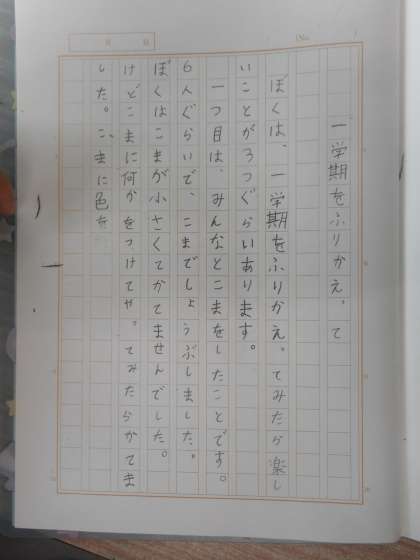 No.
一学期をふりかえ。て
ぼくは、一学期をふりかえ。てみたら楽し
いことが3つぐらいあります。
一つ目は、みんなとこまをしたことです。
6人ぐらいで、こまでしょうぶしました。
ぼくはこまが小さくてかてませんでした。
けどこまに何かをつけてや。てみたらかてま
した。こまに色を